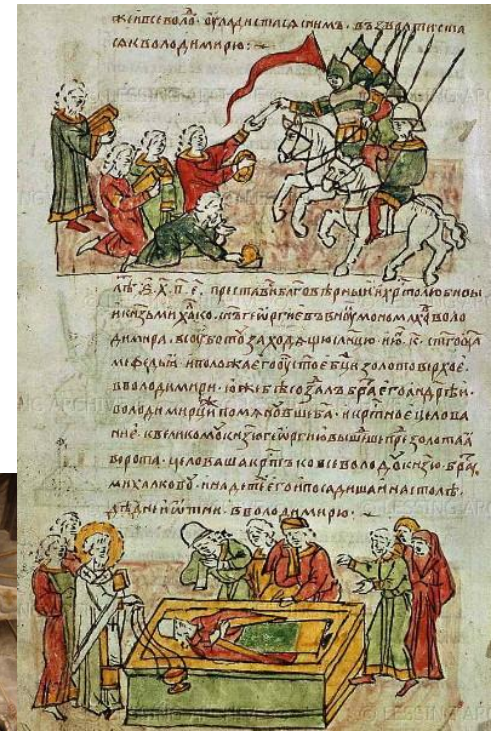 оуладистасѧ снимъ · възвратистасѧ
къ володимирю :~
лѣ · ѕ҃ · х҃ · п҃ · е҃ · преставис блг҃овѣрныи и хрⷭ҇толюбивы
и кн҃зь михалко · сн҃ъ георгиевъ внꙋ мономахо воло
димира · всоуботоу заходѧщю слн҃цю · ию · к҃ · ст҃го оц҃а
мефедьꙗ · и положиша его оу ст҃ое бц҃и золотоверхое ·
в володимири · юже бѣ создалъ бра его андрѣи ·
володимирци помѧноувше ба · и крⷭ҇тное целова
ние · к великомоу кн҃зю георгию вышедше пре золотаѧ
ворота · целоваша крⷭ҇тъ ко всеволодоу кн҃зю · бра
михалковоу · и на дете его и посадиша и на столѣ ·
дѣдни и ѡтни · в володимирю ·
© LESSING AR